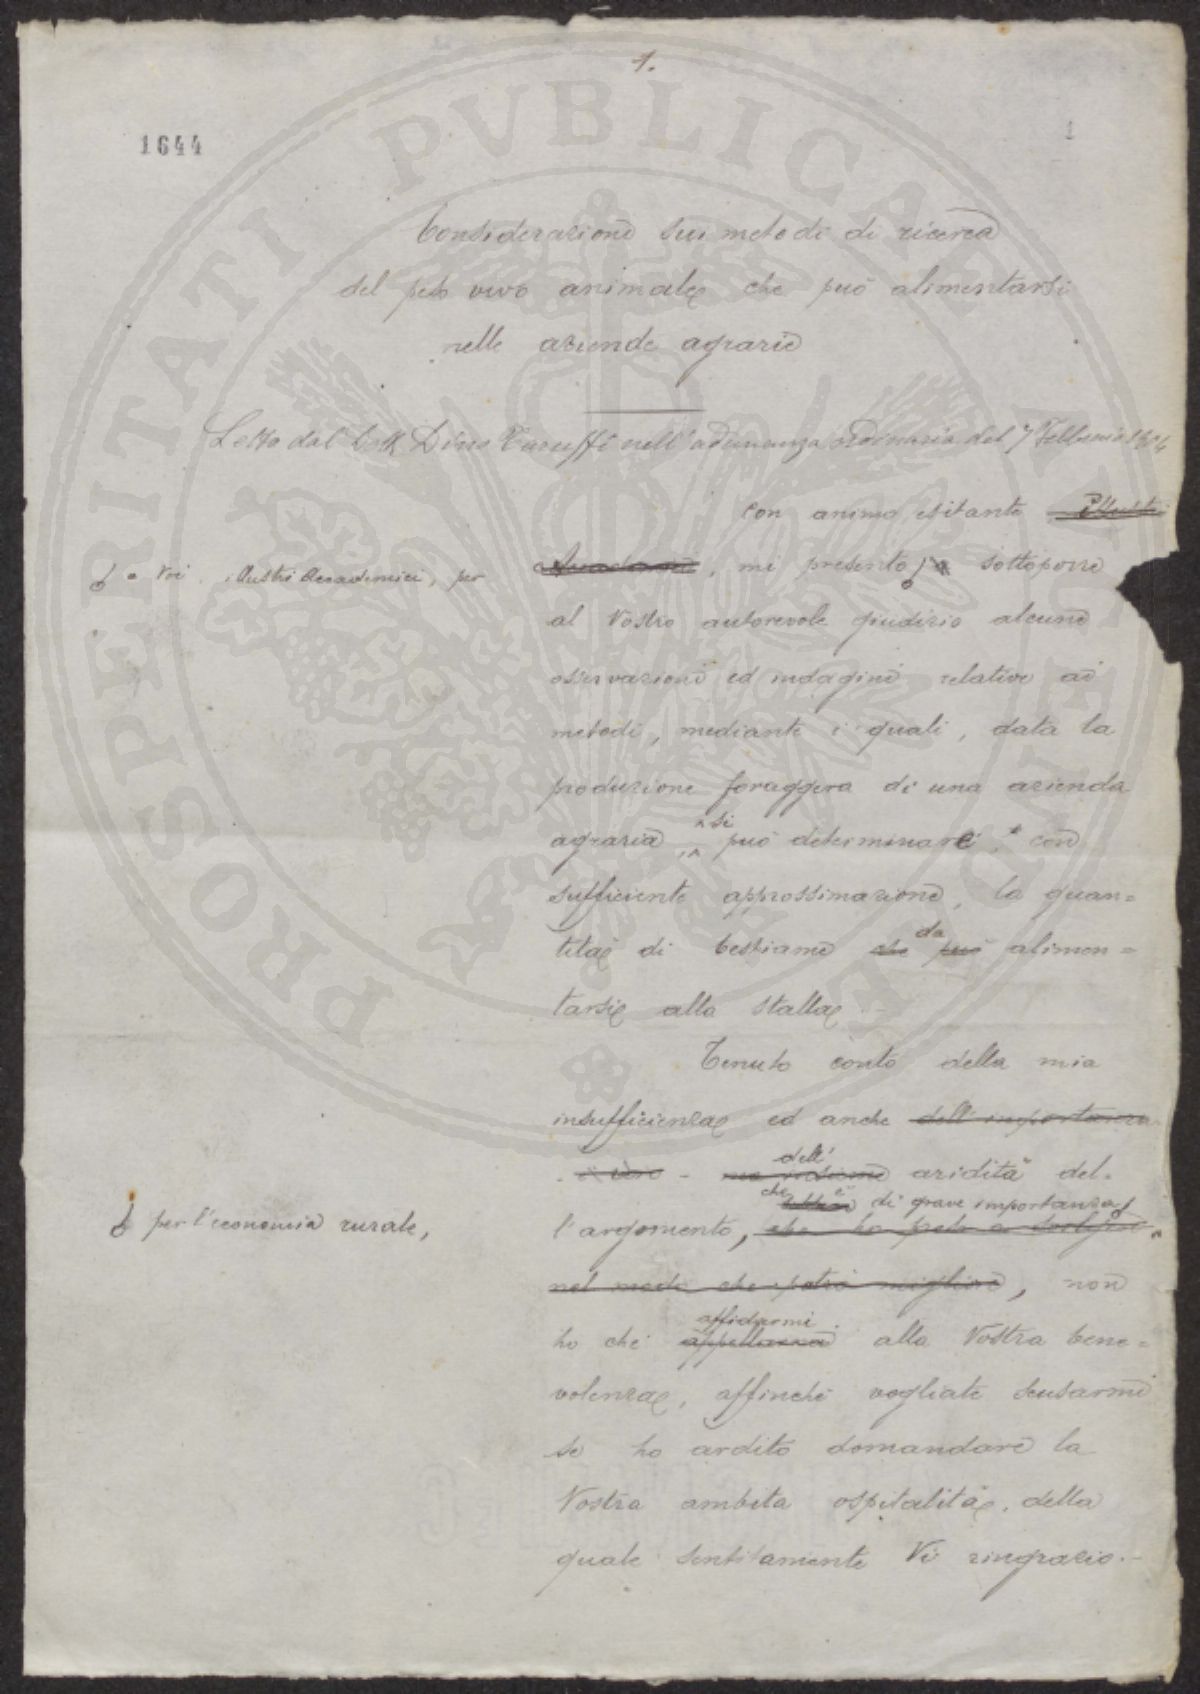 1.
1644
1
Considerazioni sui metodi di ricerca
del peso vivo animale che può alimentarsi
nelle aziende agrarie
Letto dal Dott. Dino Taruffi nell'adunanza ordinaria del 7 Febbraio
Con animo esitante illustri
a Voi, illustri Accademici, per
Accademici, mi presento a sottoporre
al Vostro autorevole giudizio alcune
osservazioni ed indagini relative ai
metodi, mediante i quali, data la
produzione foraggera di una azienda
si
agraria può determinare, con
sufficiente approssimazione, la quan=
da
tità di bestiame che può alimen=
tarsi alla stalla.
Tenuto conto della mia
insufficienza ed anche dell'importanza
dell'
aridità del=
che è di grave importanza
per l'economia rurale,
l'argomento, che ho preso a svolgere
nel modo che potrò migliore, non
affidarmi
ho che appellarmi alla Vostra bene=
volenza, affinchè vogliate scusarmi
se ho ardito domandare la
Vostra ambita ospitalità, della
quale sentitamente Vi ringrazio.-
PROSPERITATI PVBLICAE AVGENDAE